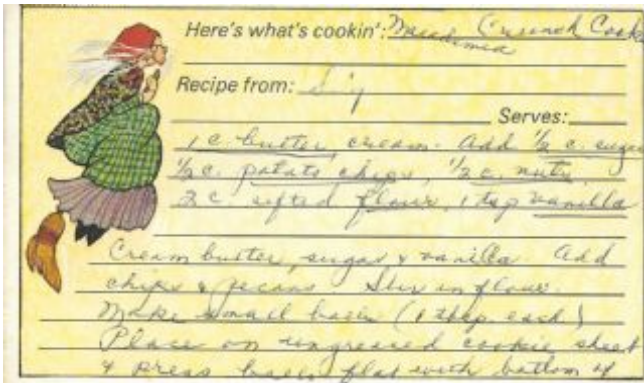 Here's what's cookin': Macadamia Crunch Cook
Recipe from:
Serves:
1 c. butter, cream. Add 1/2 c. sugar
1/2 c. potato chips, 1/2 c. nuts
2 c. sifted flour, 1 tsp vanilla
Cream butter, sugar & vanilla Add
chips & pecans Stir in flour.
Make small balls (1 tbsp. each)
Place on ungreased cookie sheet
& press balls flat with bottom of